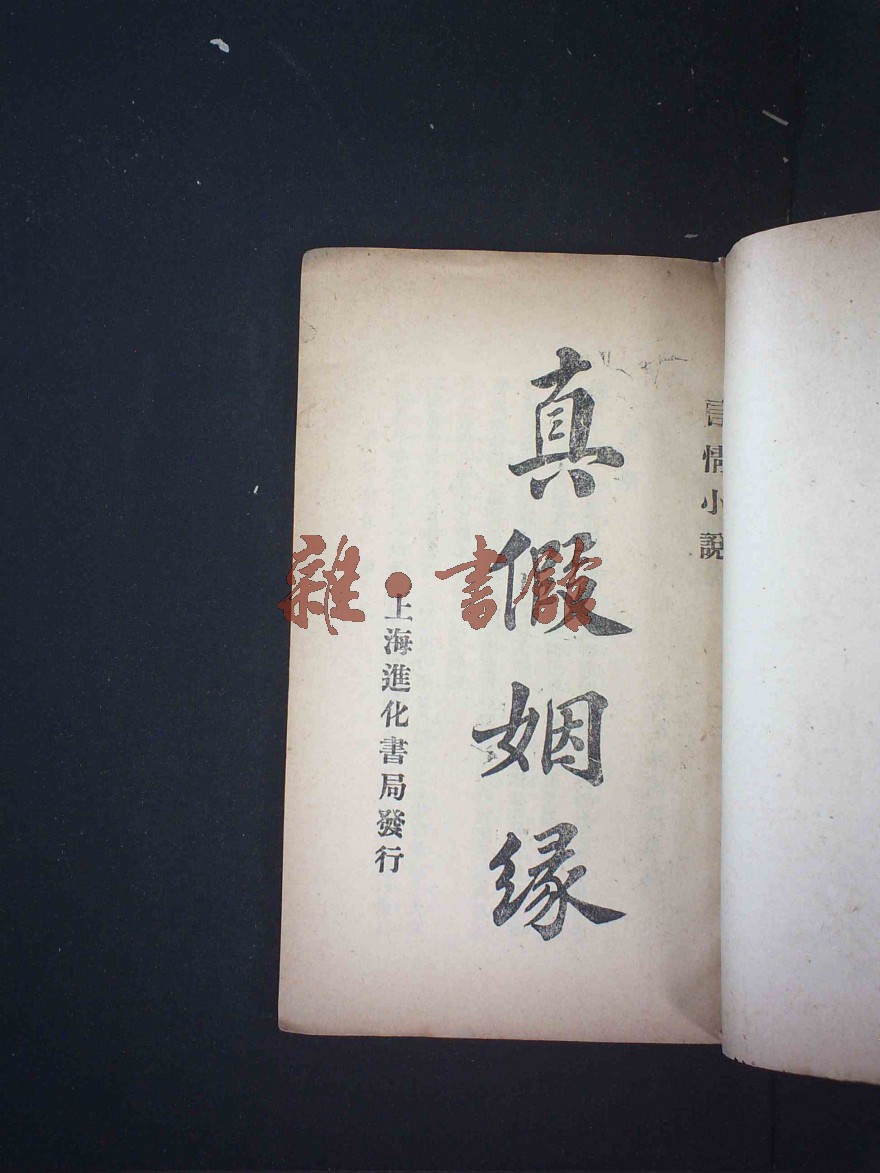 言情小說
真假姻缘
上海進化書局發行
雜·書館